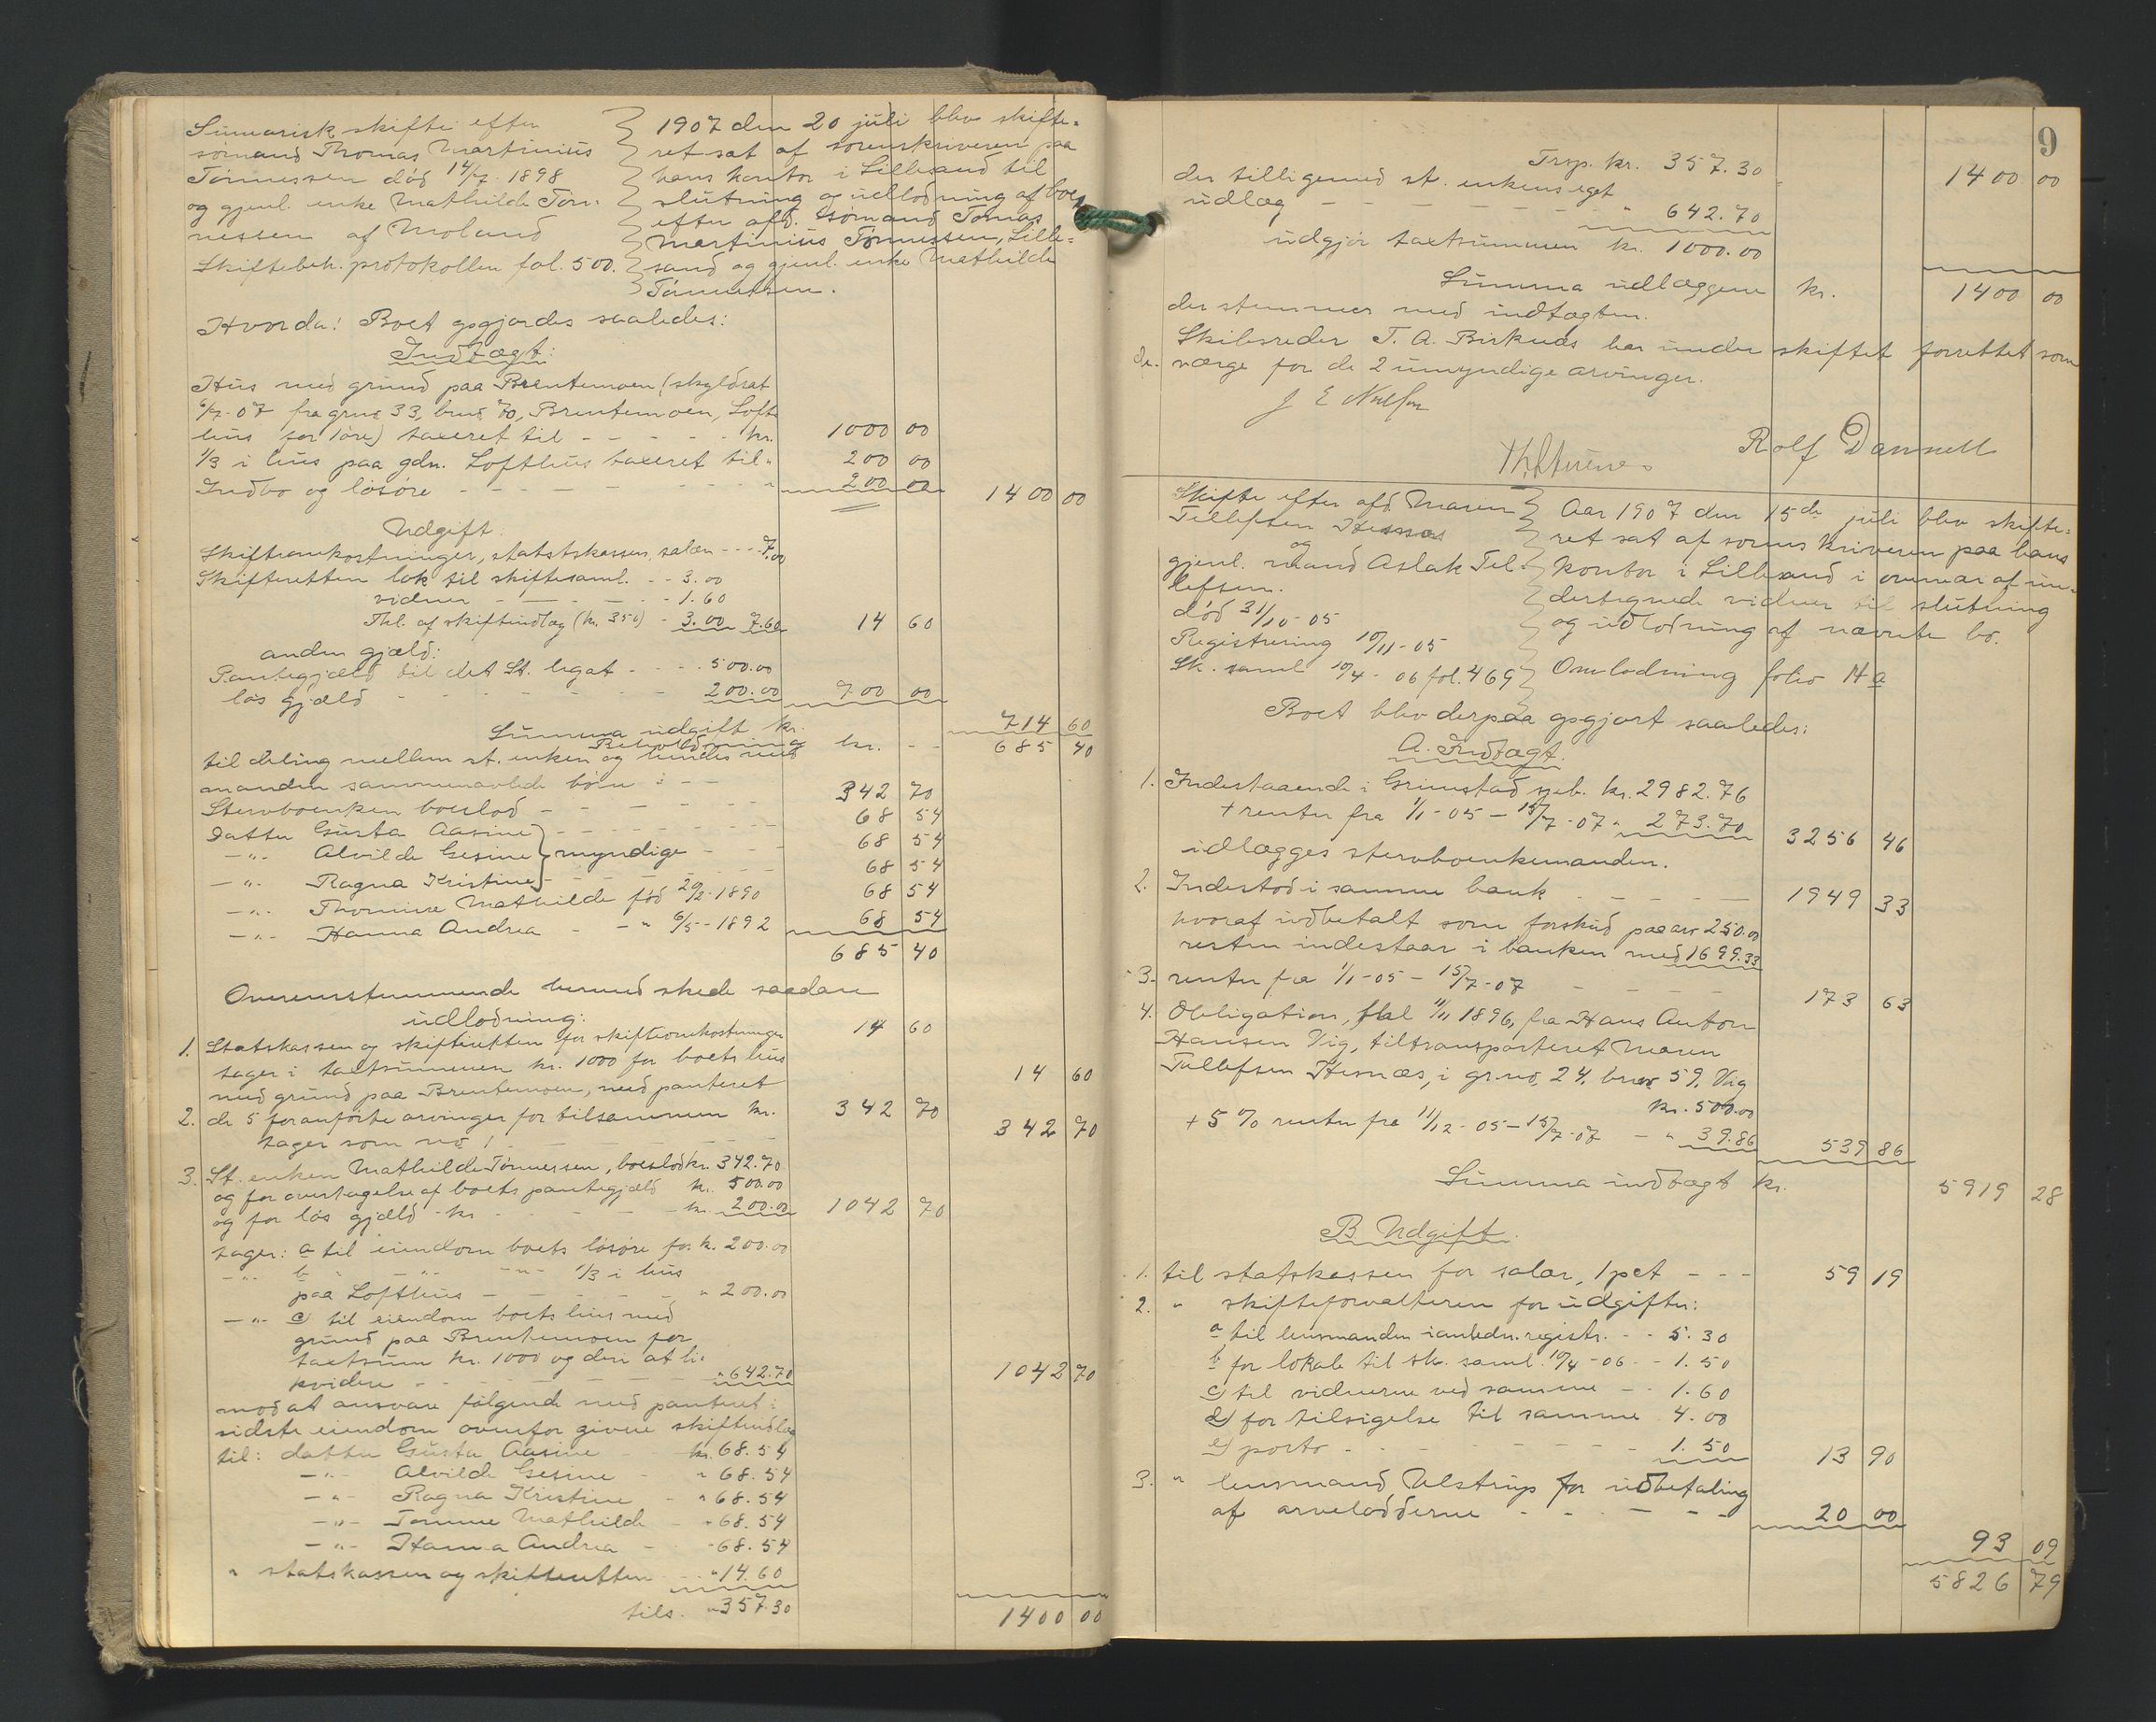 Sumarisk skifte efter
sømand Thomas Martinius
Tønnessen død 14/7 1898
og gjenl. enke Mathilde Tøn-
nessen af Moland
Skiftebeh. protokollen fol. 500.
1907 den 20 juli blev skifte-
ret sat af sorenskriveren paa
hans kontor i Lillesand til
slutning og udlodning af boet
efter afd. sømand Tomas
Martinius Tønnessen, Lille-
sand og gjenl. enke Mathilde
Tønnessen.
Hvorda: Boet opgjordes saaledes:
Indtægt:
Hus med grund paa Brentemoen (skyldsat
6/7-07 fra grno 33, brno 70, Brentemoen, Loft-
hus for 1 øre) taxeret til - - - - - kr. 1000 00
1/3 i hus paa gdn. Lofthus taxeret til " 200 00
Indbo og løsøre - - - - - - " 200 00 1400 00
Udgift.
Skifteomkostninger, statskassen, salær - - - 7.00
Skifteretten lok til skiftesaml. - - 3.00
vidner - - - - - 1.60
Tkl. af skifteudlæg (kr. 350) - 3.00 7.60 14 60
anden gjæld:
Pantegjæld til det St. legat - - - - 500.00
løs gjæld - - - - - - 200.00 700 00
Summa udgift kr. 714 60
Beholdning kr. - - 685 40
til deling mellem st. enken og hendes med
manden sammenavlede børn: - -
Stervboenken boeslod - - - - - - 342 70
datter Gusta Aasine - - - - - - 68 54
-"- Alvilde Gesine } myndige - - - 68 54
-"- Ragna Kristine - - - - - 68 54
-"- Thomine Mathilde født 20/2-1890 68 54
-"- Hanna Andrea - - " 6/5-1892 68 54
685 40
Overensstemmende hermed skede saadan
udlodning:
1. Statskassen og skifteretten for skifteomkostninger 14 60
tager i taxtsummen kr. 1000 for boets hus
med grund paa Brentemoen, med panteret 14 60
2. de 5 foranførte arvinger for tilsammen kr. 342 70
tager som no 1 - - - - - - 342 70
3. St. enken Mathilde Tønnessen, boeslod kr. 342.70
og for overtagelse af boets pantegjæld kr. 500.00
og for løs gjæld - kr - - - - - kr. 200.00 1042 70
tager: a til eiendom boets løsøre for k. 200.00
-"- b " -"- -"- 1/3 i hus
paa Lofthus - - - - - - " 200.00
-"- c) til eiendom boets hus med
grund paa Brentemoen for
taxtsum kr. 1000 og deri at li-
kvidere - - - - - - - " 642.70 1042 70
mod at ansvare følgende med panteret i
sidste eiendom ovenfor givne skifteudlæg
til: datter Gusta Aasine - kr. 68.54
-"- Alvilde Gesine - " 68.54
-"- Ragna Kristine - " 68.54
-"- Tomine Mathilde - " 68.54
-"- Hanna Andrea - - " 68.54
" statskassen og skifteretten - - " 14.60
tils. " 357.30 1400 00
9
Trsp. kr. 357.30 1400 00
der tilligemed st. enkens eget
udlæg - - - - - - - " 642.70
udgjør taxtsummen kr. 1000.00
Summa udlæggene kr. 1400 00
der stemmer med indtægten.
Skibsreder T. A. Birknes har under skiftet forrettet som
værge for de 2 umyndige arvinger.
Rolf
Skifte efter afd Maren
Tellefsen Hesnæs
og
gjenl. mand Aslak Tel-
lefsen.
død 31/10-05
Registrering 10/11-05
Sk. saml 10/4-06 fol. 469
Aar 1907 den 15de juli blev skifte-
ret sat af sorenskriveren paa hans
kontor i Lillesand i overvær af un-
dertegnede vidner til slutning
og udlodning af nævnte bo.
Omlodning folio 14 a
Boet blev derpaa opgjort saaledes:
A. Indtægt.
1. Indestaaende i Grimstad spb. kr. 2982.76
+ renter fra 1/1-05 - 15/7-07 " 273.70 3256 46
idlægges stervboenkemanden.
2. Indestod i samme bank - - - - - 1949 33
hvoraf udbetalt som forskud paa arv 250.00
resten indestaar i banken med 1699.33
3. renter fra 1/1-05 - 15/7-07 - - - - 173 63
4. Obligation, tkl 11/11 1896, fra Hans Anton
Hansen Vig, tiltransporteret Maren
Tellefsen Hesnæs, i gr.no. 24, brno 59. Vig
kr. 500.00
+ 5 % renter fra 11/12-05 - 15/7-07 - " 39.86 539 86
Summa indtægt kr. 5919 28
B. Udgift.
1. til statskassen for salær, 1 pct - - - 59 19
2. " skifteforvalteren for udgifter:
a til lensmanden i anledn. registr. - - 5.30
b for lokale til sk. saml. 10/4-06 - - 1.50
c) til vidnerne ved samme - - 1.60
d) for tilsigelse til samme 4.00
e) porto - - - - - - - 1.50 13 90
3. " lensmand Ulstrup for udbetaling
af arvelodderne - - - - - 20 00
93 09
5826 79